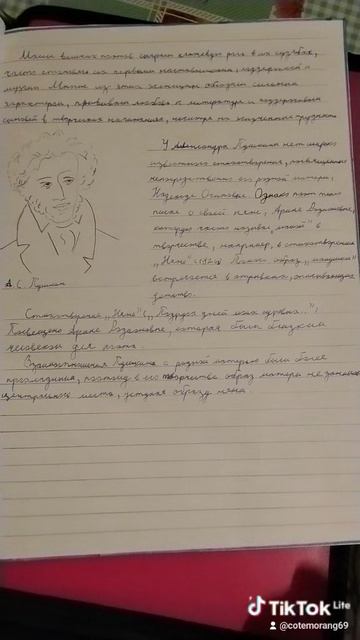 Мамы великих поэтов сыграли ключевую роль в их судьбах,
часто становясь их первыми наставницами, поддержкой и
музами. Многие из этих женщин обладали сильным
характером, прививали любовь к литературе и поддерживали
сыновей в творческих начинаниях, несмотря на жизненные трудности
У Александра Пушкина нет широко
известного стихотворения, посвящённого
непосредственно его родной матери,
Надежде Осиповне. Однако поэт тепло
писал о своей няне, Арине Родионовне,
которую часто называл „мамой" в
творчестве, например, в стихотворении
„Няне" образ „мамушки"
встречается в отрывках, описывающих
детство.
А. С. Пушкин
Стихотворение „Няне" („Подруга дней моих суровых...")
Посвящено Арине Родионовне, которая была близким
человеком для поэта.
Взаимоотношения Пушкина с родной матерью были более
прохладными, поэтому в его творчестве образ матери не занимал
центрального места, уступая образу няни.
TikTok Lite
@cotemorang69